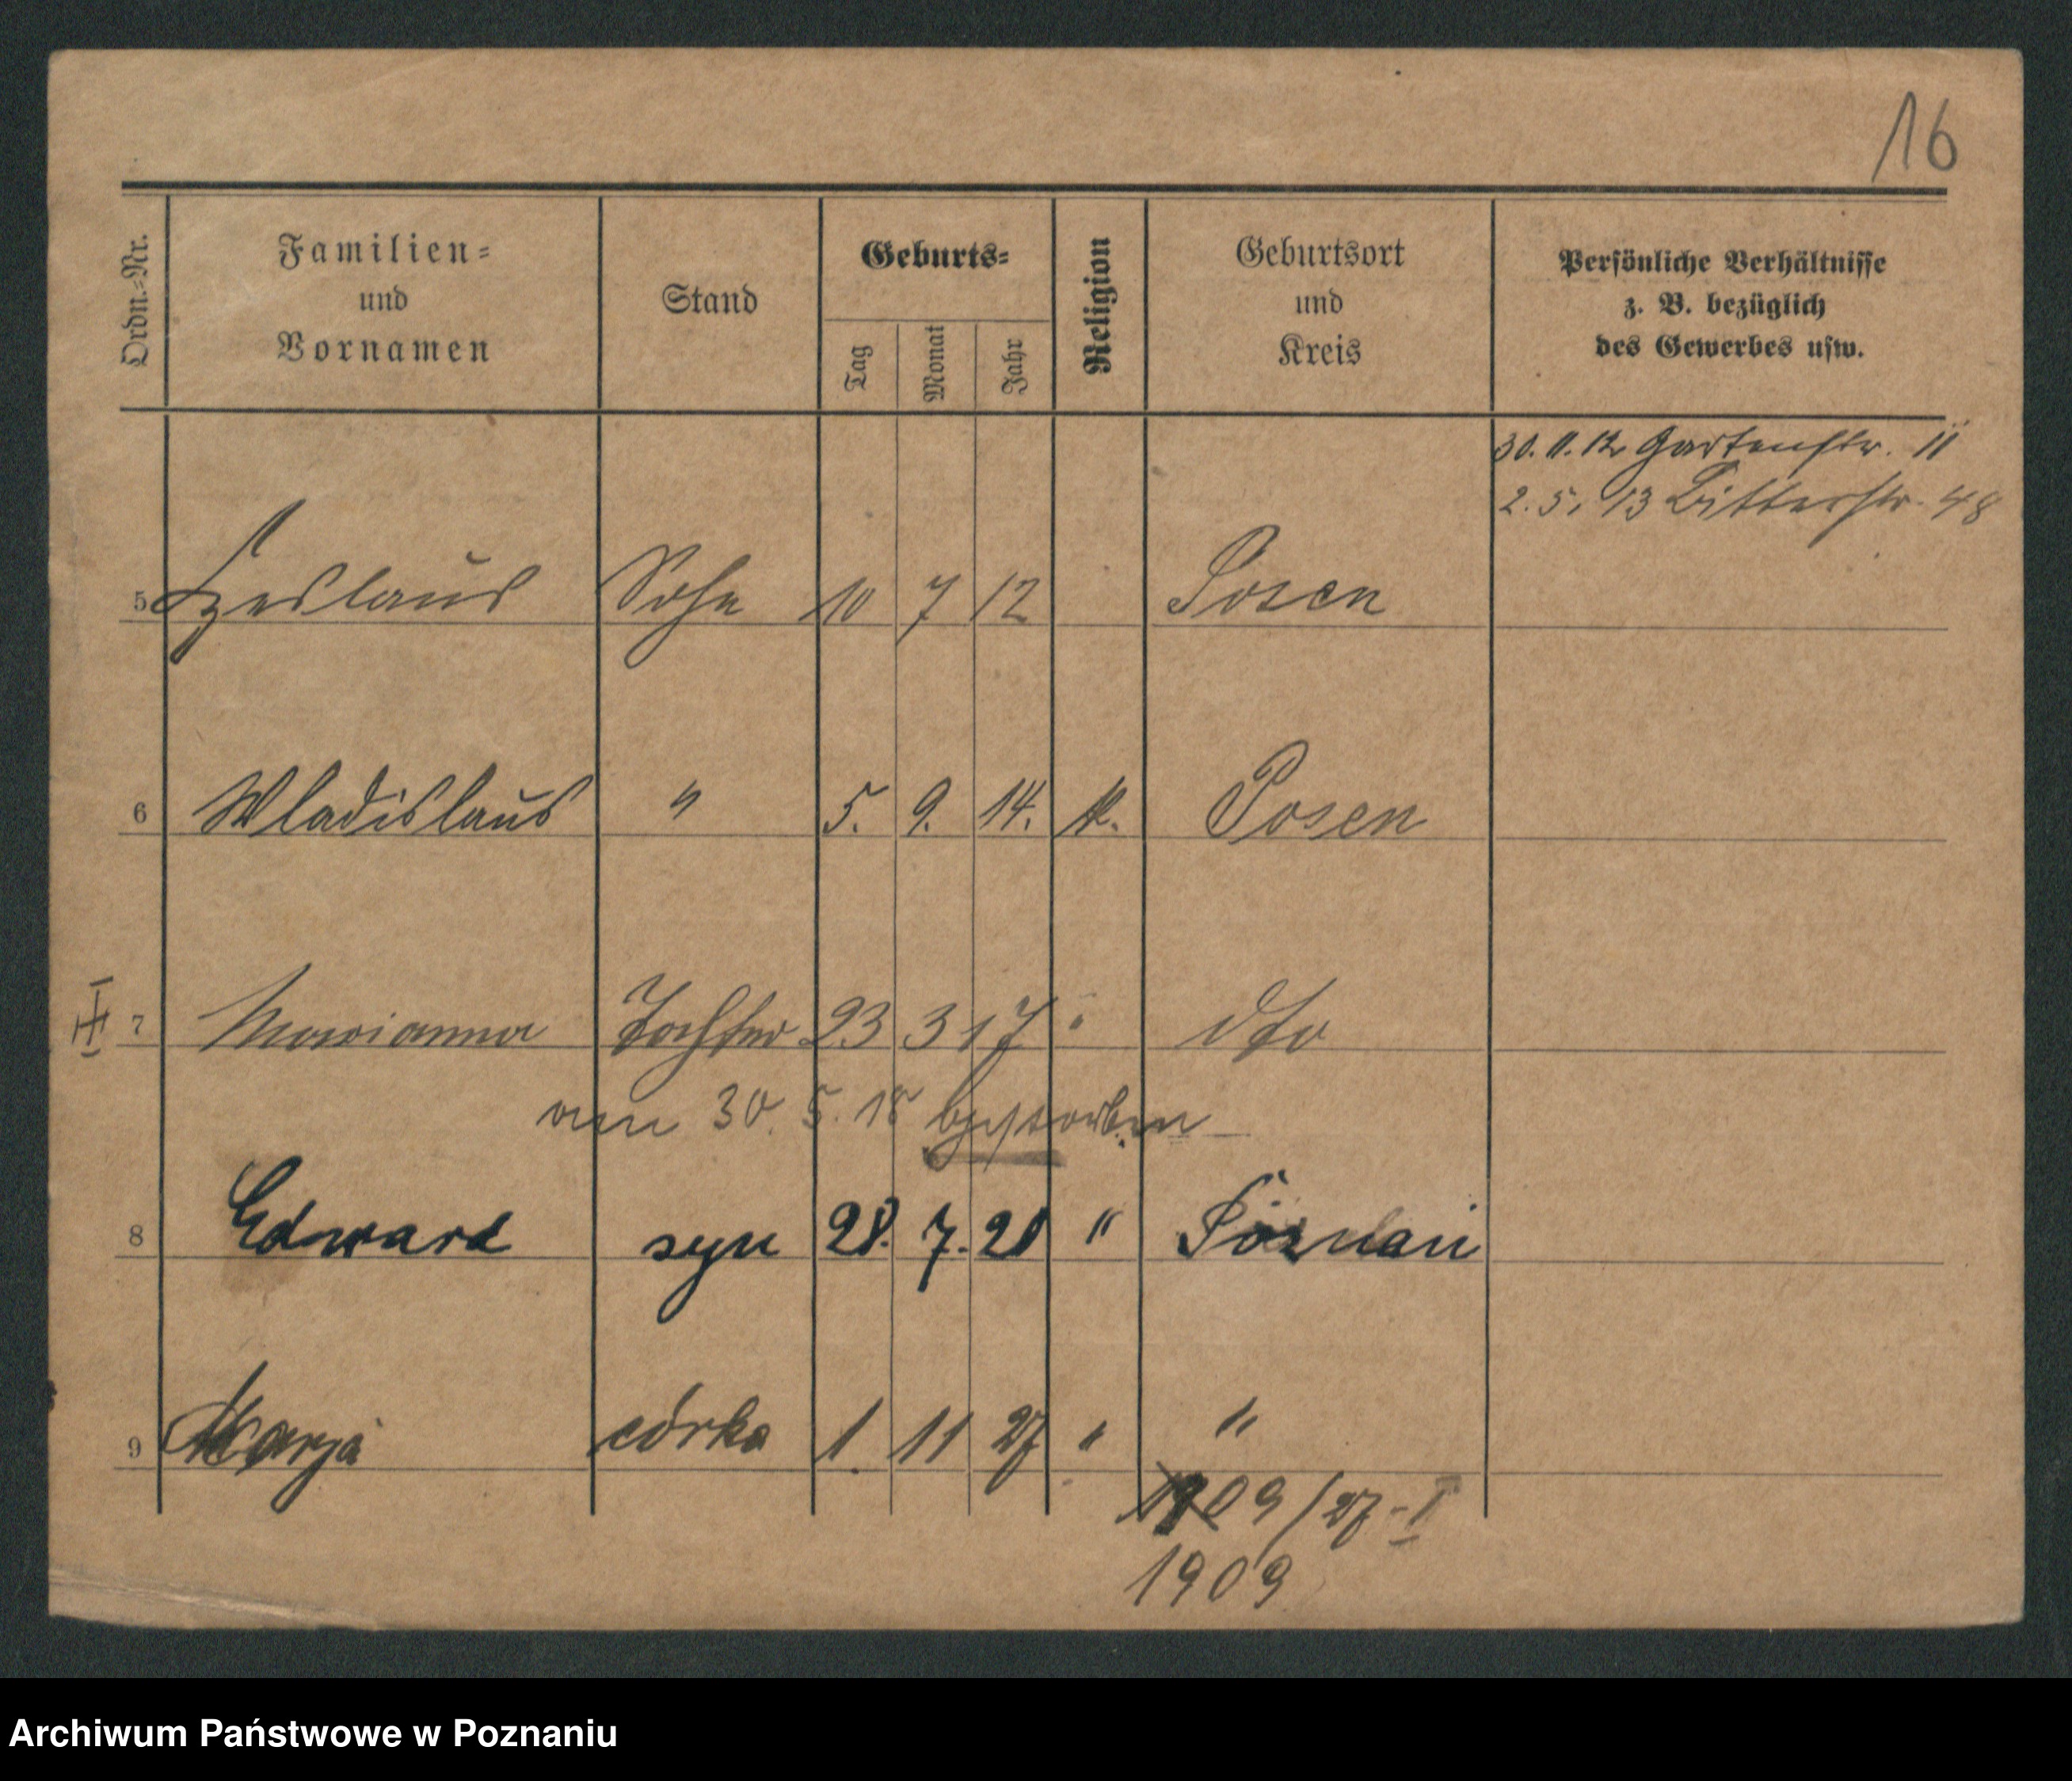 16
Ordn.-Nr.
Familien-
und
Vornamen
Stand
Geburts-
Tag
Monat
Jahr
Religion
Geburtsort
und
Kreis
Persönliche Verhältnisse
z. B. bezüglich
des Gewerbes usw.
30. 11. 12 Gartenstr. 11
2. 5. 13 Bitterstr. 48
5 Czeslaus Sohn 10 7 12 Posen
6 Wladislaus " 5. 9. 14. k. Posen
7 Marianna Tochter 23 3 17 " dto
am 30. 5. 18
8 Edward syn 28. 7. 20 " Poznań
9 Marja córka 1 11 27 " "
1909/27-I
1909
Archiwum Państwowe w Poznaniu